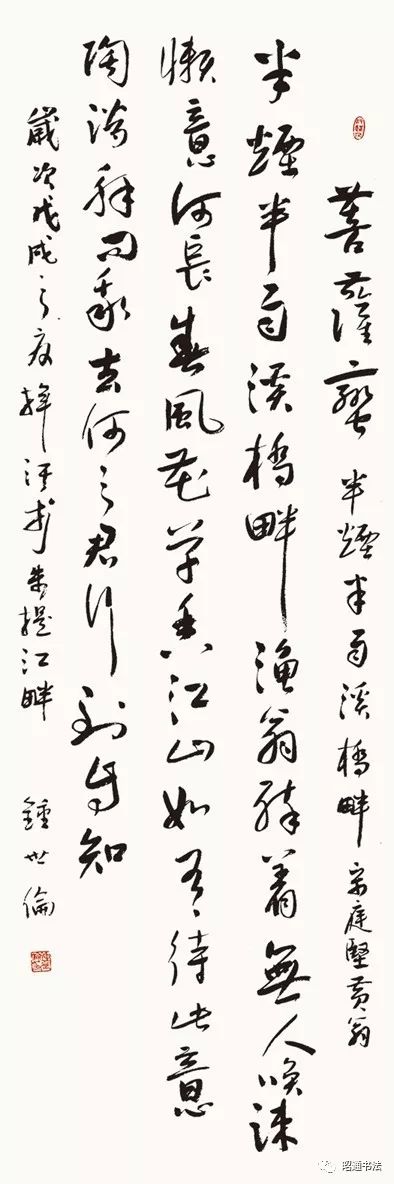 菩薩蠻 半煙半雨溪橋畔 宋庭堅黃翁
半煙半雨溪橋畔漁翁醉着無人喚疎
懶意何長春風花草香江山如有待此意
陶潛解問我去何之君行到自知
歲次戊戌之夏揮汗於朱提江畔 鍾世倫
昭通书法